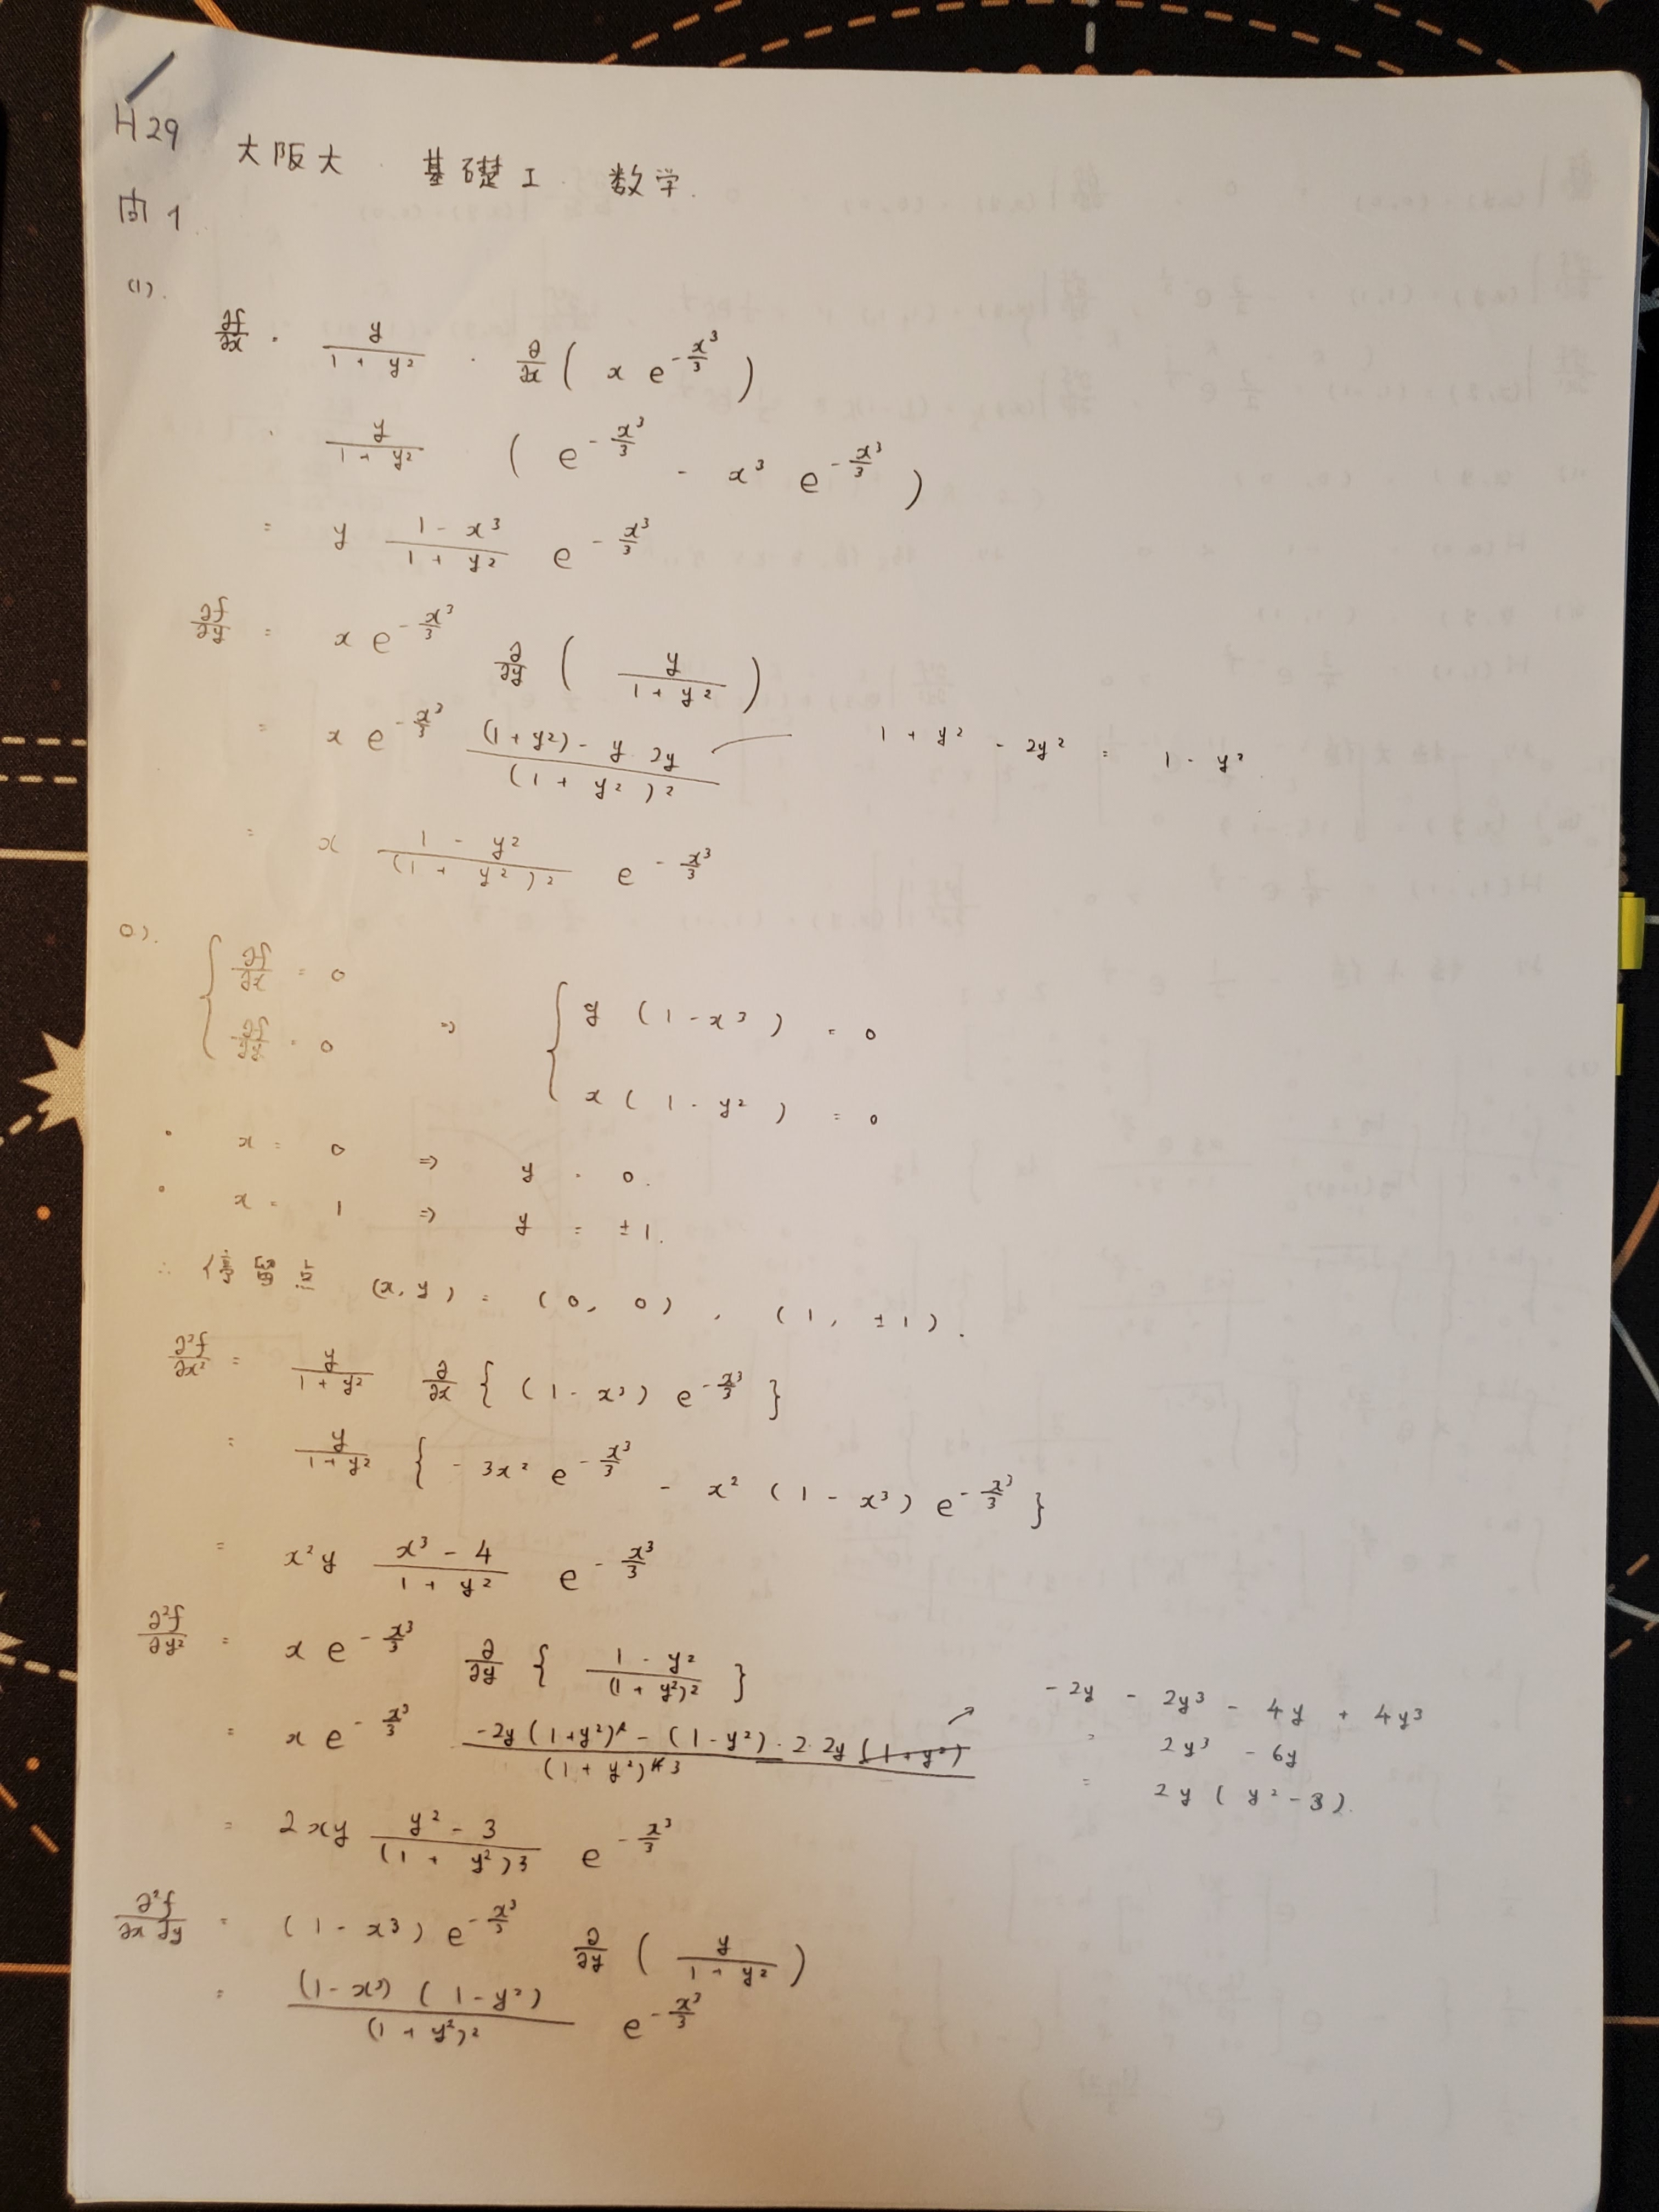 H29 大阪大 基礎I 数学.
問1
(1).
∂f/∂x = y/(1+y²) · ∂/∂x ( x e^{-x³/3} )
= y/(1+y²) ( e^{-x³/3} - x³ e^{-x³/3} )
= y (1-x³)/(1+y²) e^{-x³/3}
∂f/∂y = x e^{-x³/3} ∂/∂y ( y/(1+y²) )
= x e^{-x³/3} ((1+y²) - y · 2y)/(1+y²)² 1+y² - 2y² = 1-y²
= x (1-y²)/(1+y²)² e^{-x³/3}
{ ∂f/∂x = 0 ⇒ { y (1-x³) = 0
= 0 x (1-y²) = 0
• x = 0 ⇒ y = 0.
• x = 1 ⇒ y = ±1.
∴ 停留点 (x, y) = (0, 0), (1, ±1).
∂²f/∂x² = y/(1+y²) ∂/∂x { (1-x³) e^{-x³/3} }
= y/(1+y²) { -3x² e^{-x³/3} - x² (1-x³) e^{-x³/3} }
= x²y (x³-4)/(1+y²) e^{-x³/3}
∂²f/∂y² = x e^{-x³/3} ∂/∂y { (1-y²)/(1+y²)² }
= x e^{-x³/3} (-2y(1+y²) - (1-y²) · 2 · 2y)/(1+y²)³ → -2y - 2y³ - 4y + 4y³
= 2y³ - 6y
= 2y (y²-3).
= 2xy (y²-3)/(1+y²)³ e^{-x³/3}
∂²f/∂x∂y = (1-x³) e^{-x³/3} ∂/∂y ( y/(1+y²) )
= (1-x³)(1-y²)/(1+y²)² e^{-x³/3}